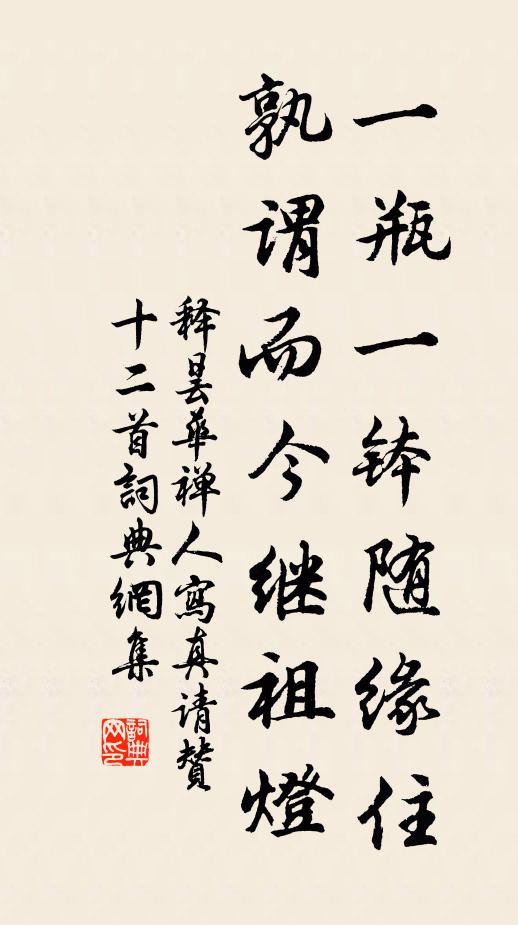 一瓶一钵随缘住
孰谓而今继祖燈
释曇華禅人寫真请贊
十二首詞典網集
詞典
网印